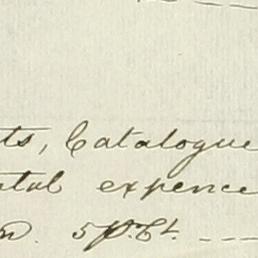 ts, Catalogue
ntal expence
n. 5 P. Ct.